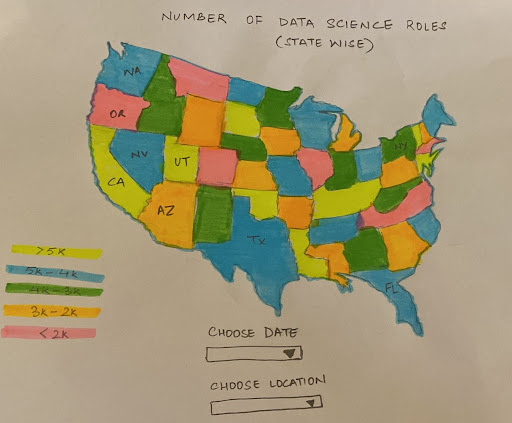 NUMBER OF DATA SCIENCE ROLES
(STATE WISE)
WA
OR
NV
UT
CA
AZ
TX
NY
FL
>5K
5K-4K
4K-3K
3K-2K
<2K
CHOOSE DATE
CHOOSE LOCATION